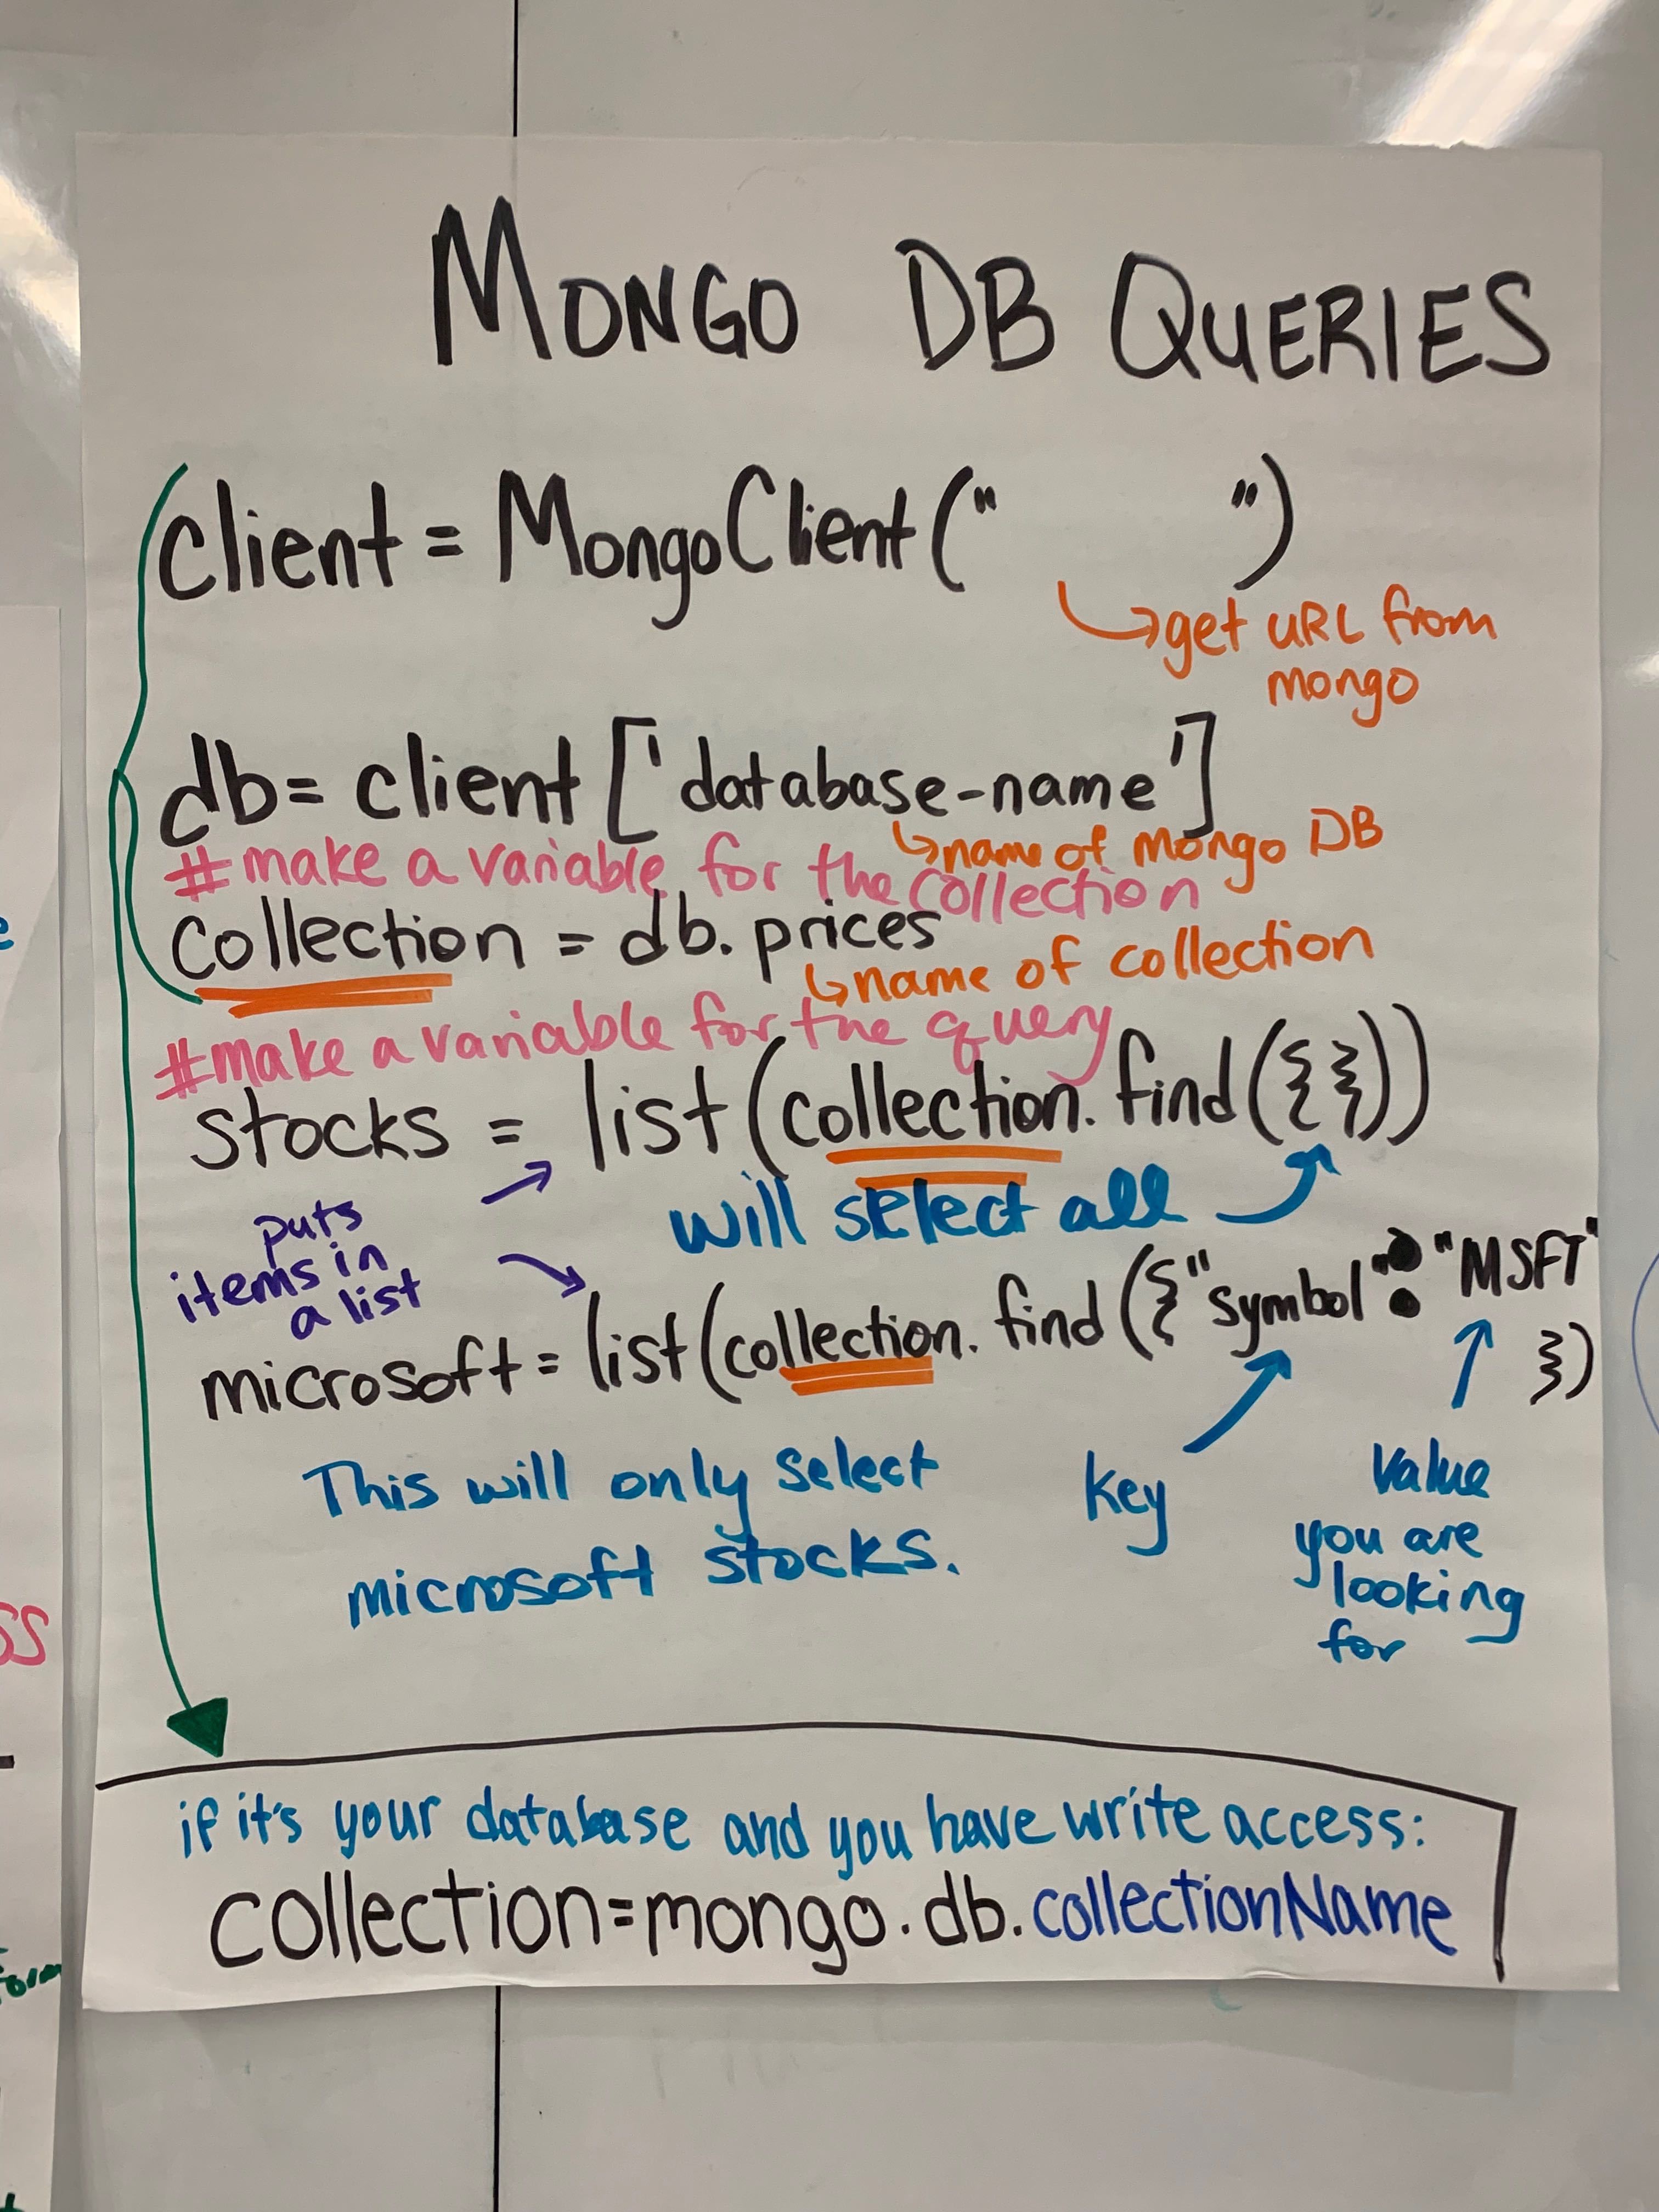 MONGO DB QUERIES
client = MongoClient(" ")
get URL from
mongo
db= client ['database-name']
name of Mongo DB
# make a variable for the collection
collection = db.prices
name of collection
#make a variable for the query
stocks = list(collection.find({}))
will select all
puts
items in
a list
microsoft = list(collection.find({"symbol": "MSFT"
})
This will only select
microsoft stocks.
key
Value
you are
looking
for
if it's your database and you have write access:
collection=mongo.db.collectionName
SS
form